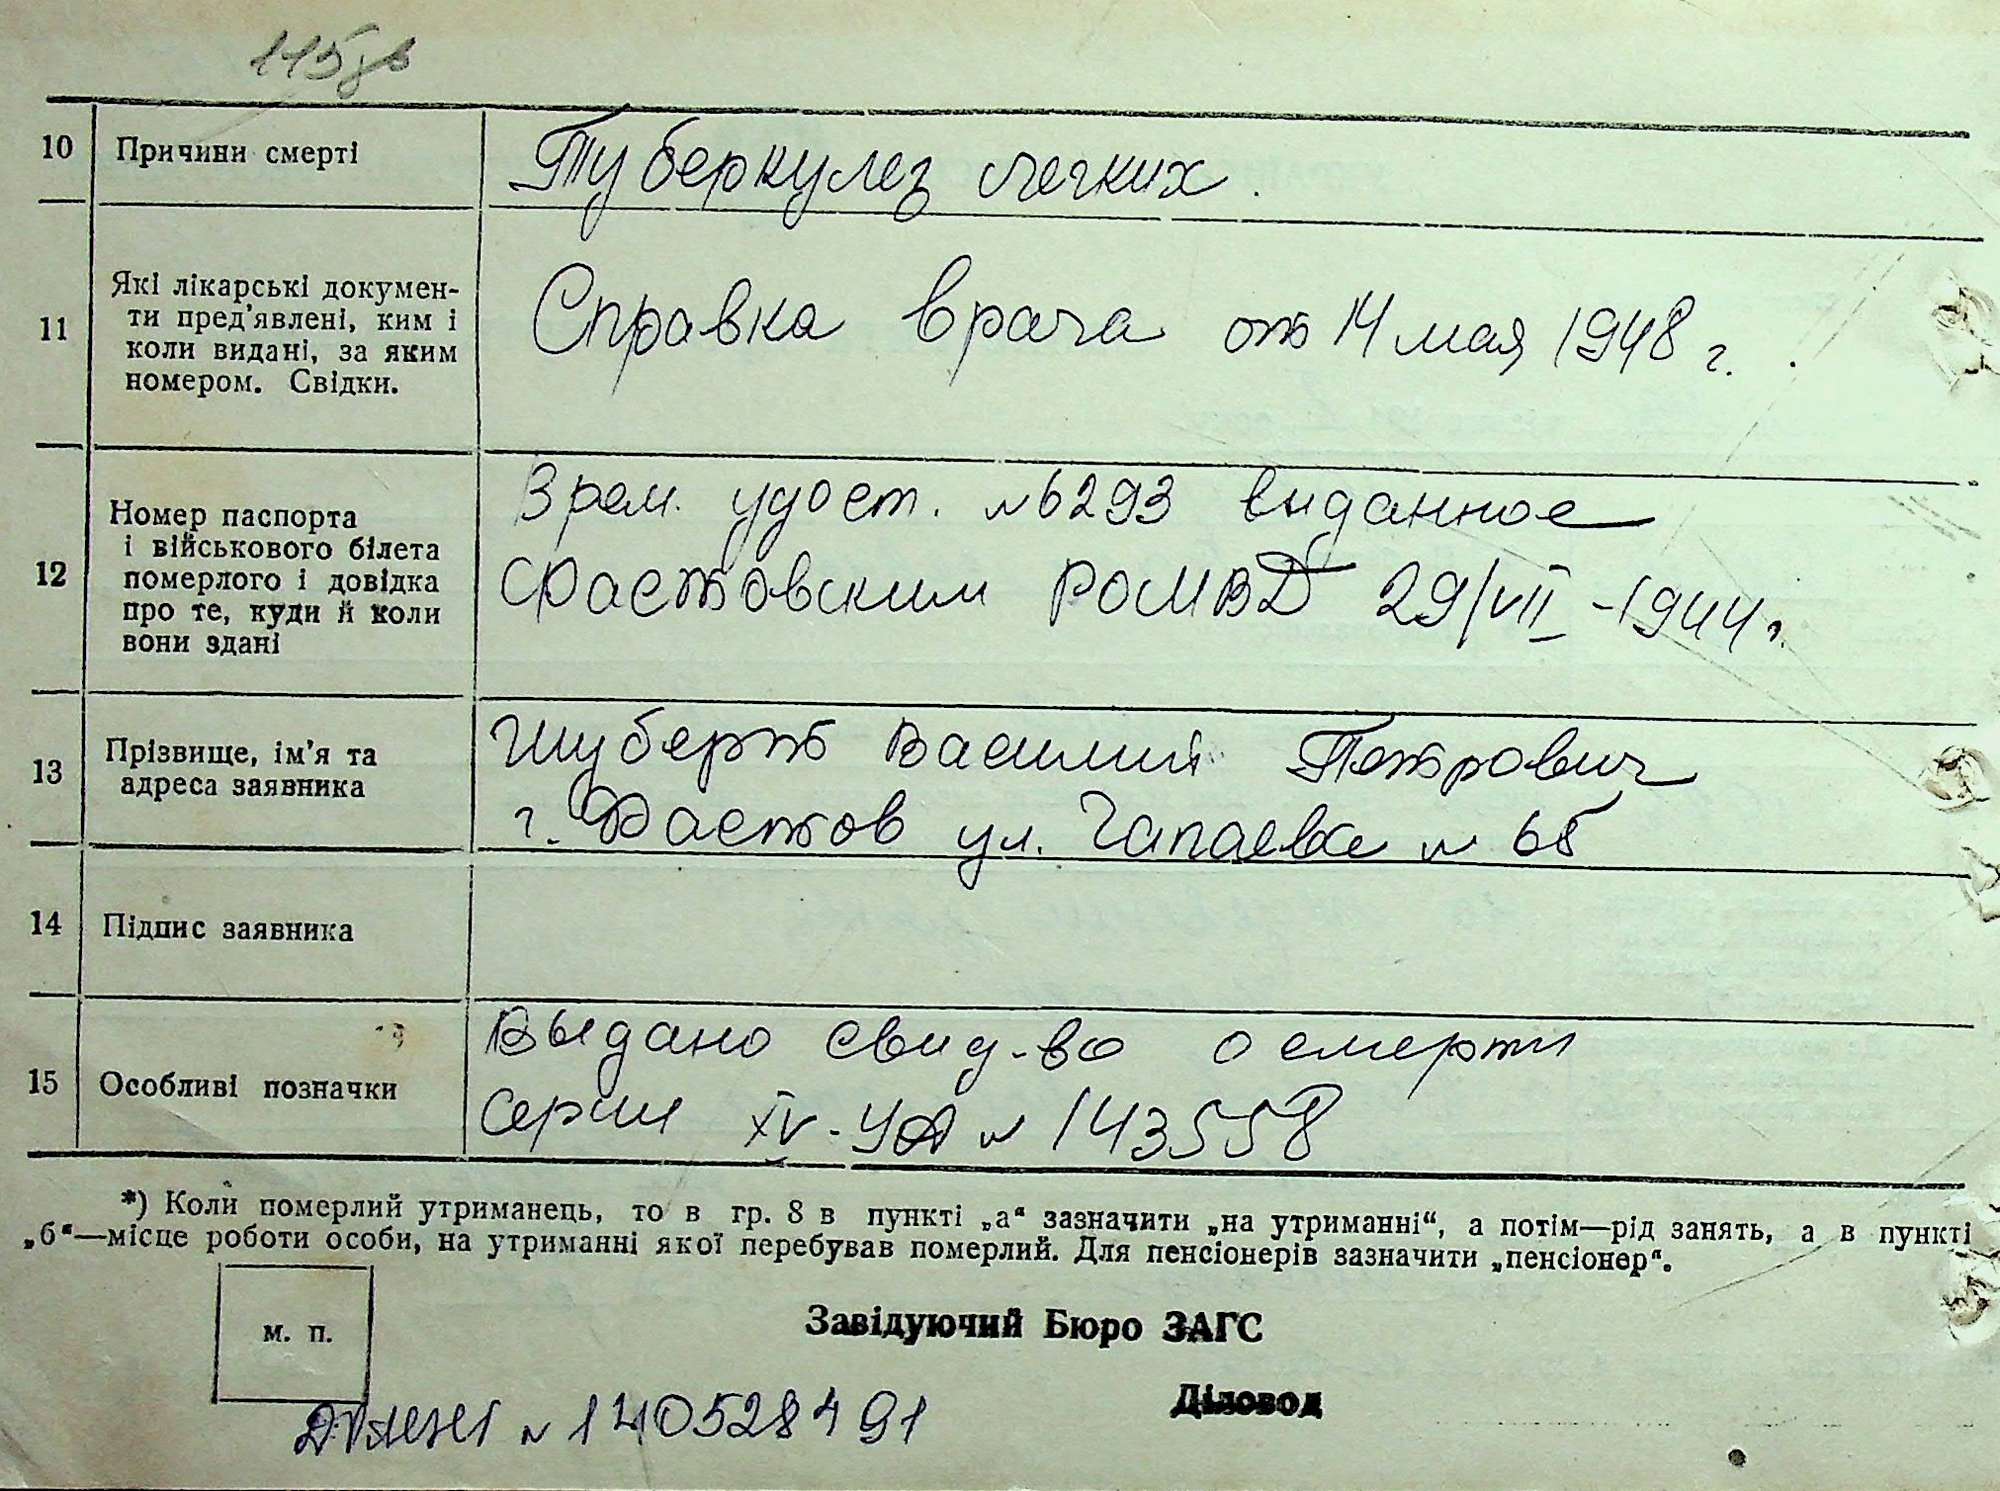 115зв
10 Причини смерті
Туберкулез легких.
11 Які лікарські докумен-
ти пред'явлені, ким і
коли видані, за яким
номером. Свідки.
Справка врача от 14 мая 1948 г.
12 Номер паспорта
і військового білета
померлого і довідка
про те, куди й коли
вони здані
Врем. удост. №6293 выданное
Фастовским РОМВД 29/VII -1944г.
13 Прізвище, ім'я та
адреса заявника
Шуберт Василий Петрович
г. Фастов ул. Чапаева № 65
14 Підпис заявника
15 Особливі позначки
Выдано свид-во о смерти
серии XIV-УА № 143558
*) Коли померлий утриманець, то в гр. 8 в пункті „а“ зазначити „на утриманні“, а потім—рід занять, а в пункті
„б“—місце роботи особи, на утриманні якої перебував померлий. Для пенсіонерів зазначити „пенсіонер“.
м. п.
Завідуючий Бюро ЗАГС
Діловод